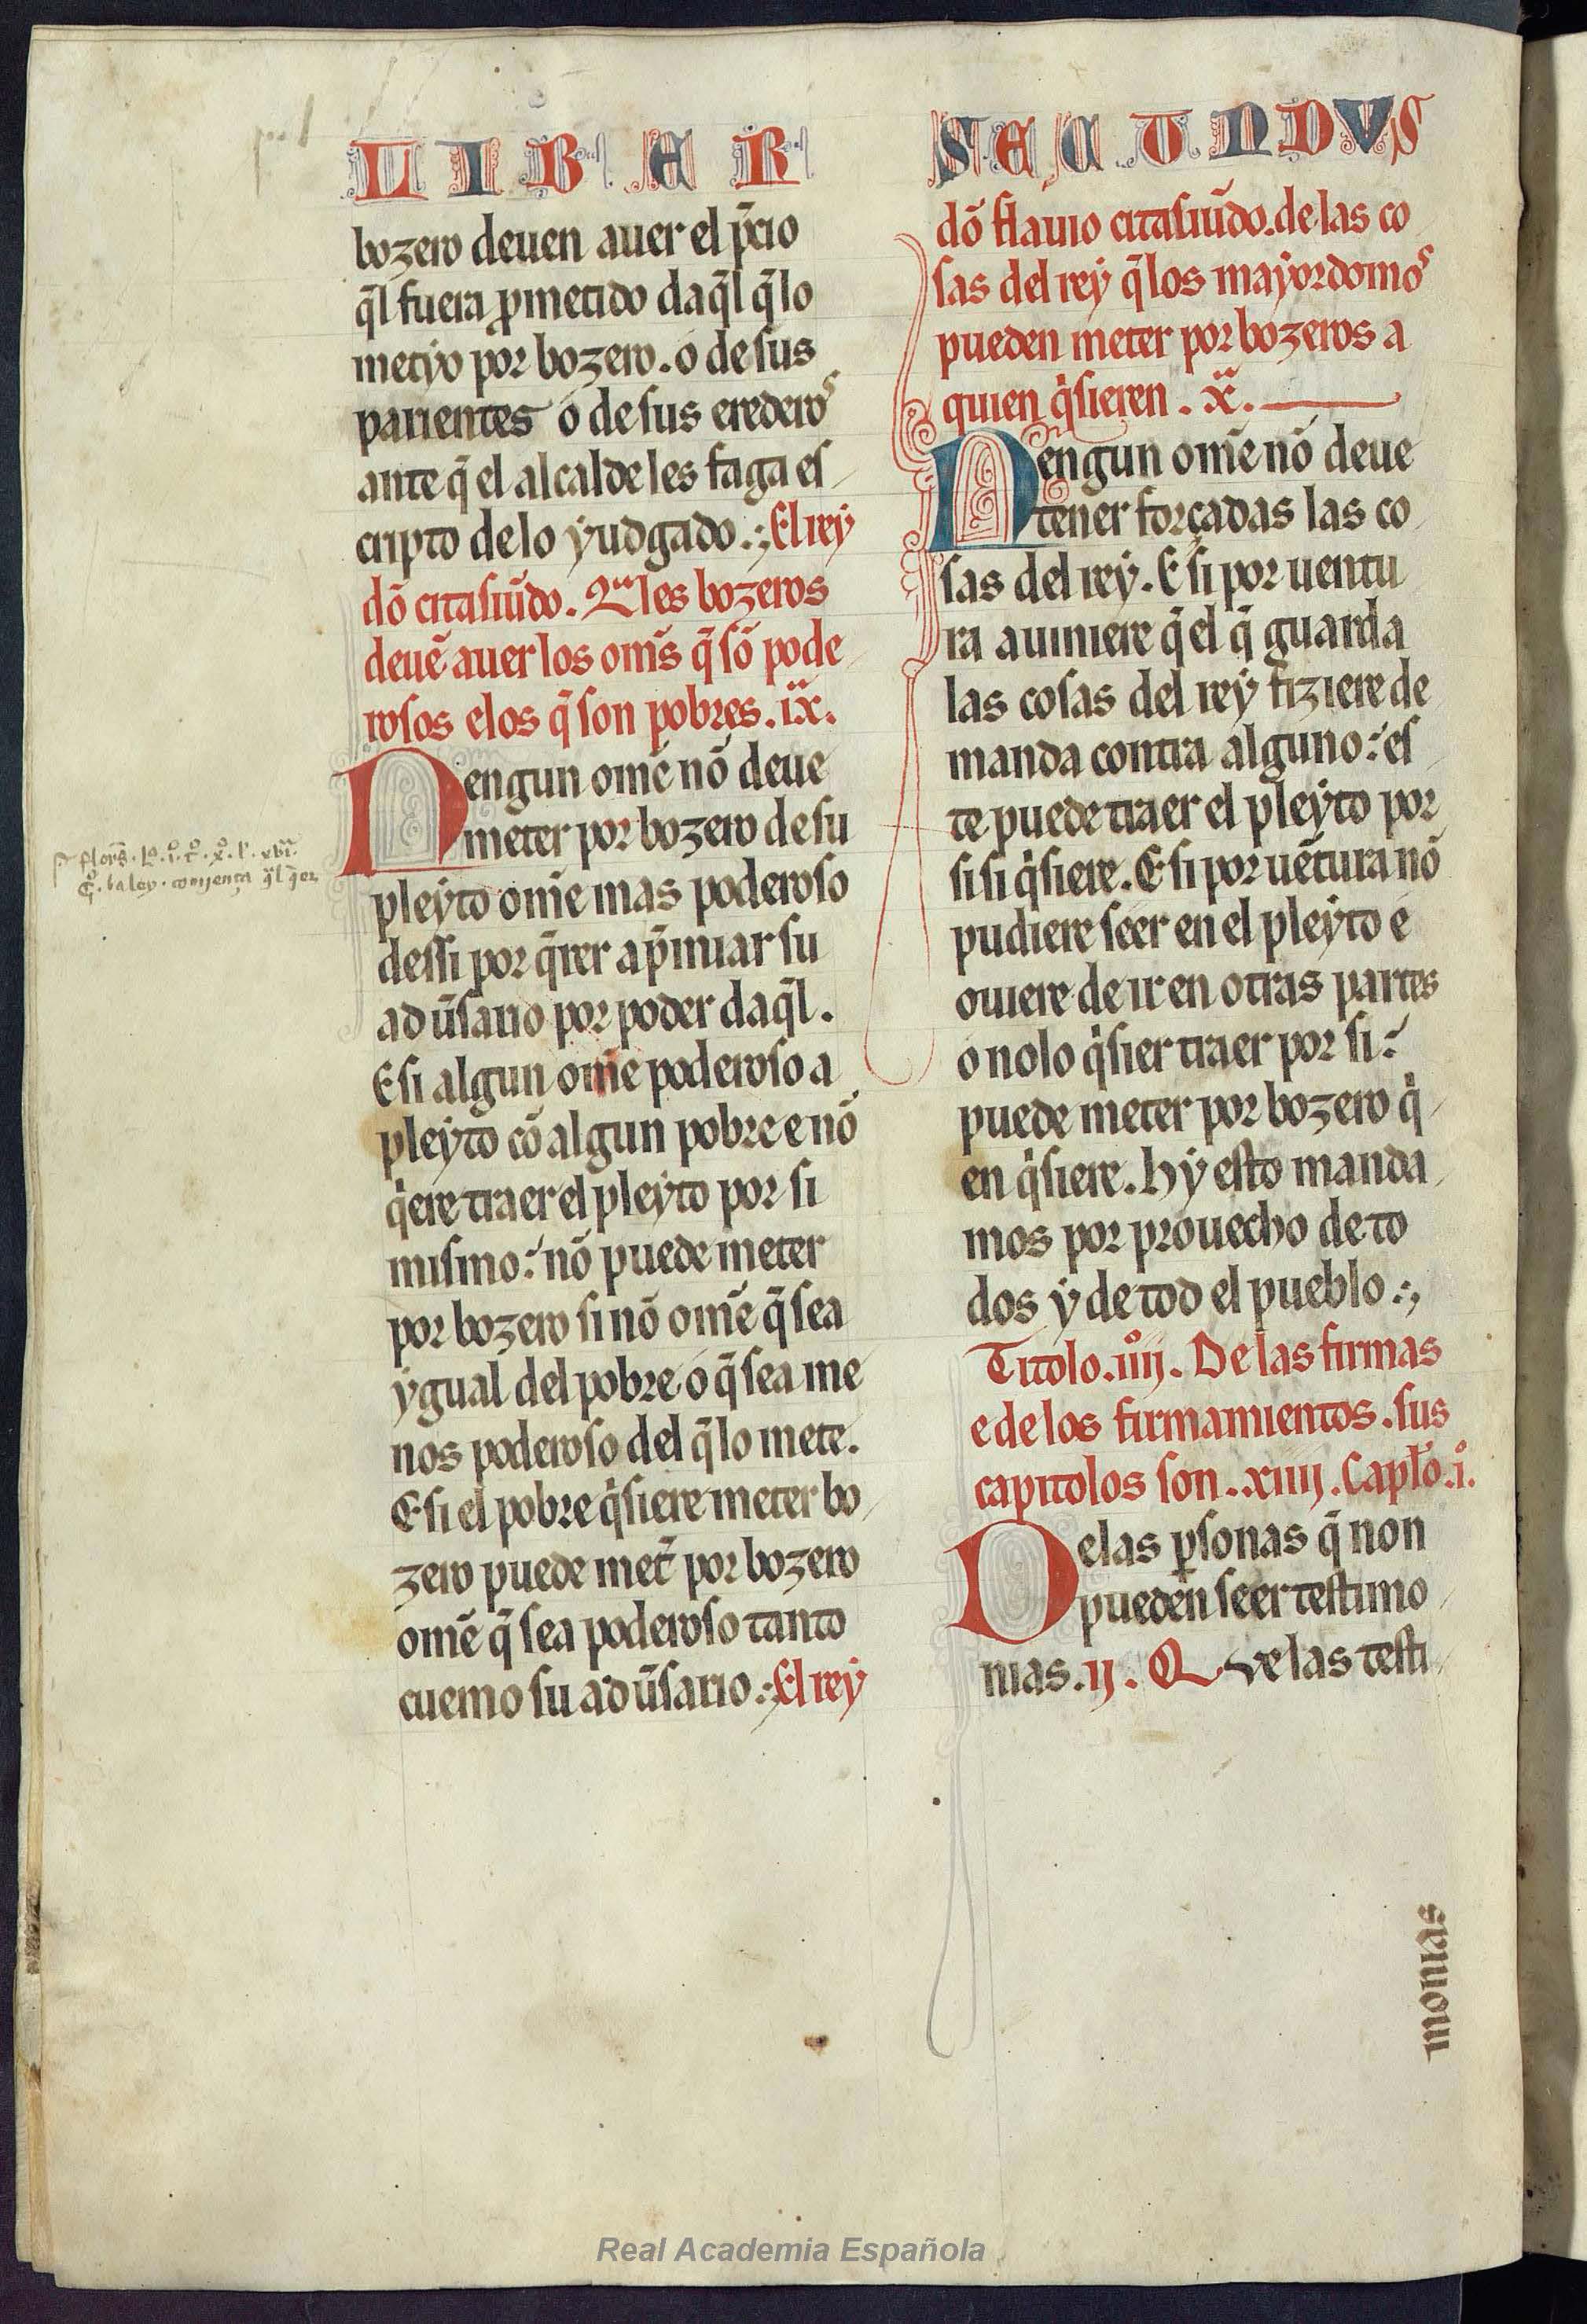 LIBER
bozero deuen auer el p̄cio
q̄l fuera ꝓmetido daq̄l q̄ lo
metyo por bozero. o de sus
parientes o de sus erederos
ante q̄ el alcalde les faga es
cripto de lo yudgado. El rey
dō citasiūdo. Quales bozeros
deuē auer los om̄s q̄ sō pode
rosos e los q̄ son pobres. ix.
Nengun omē nō deue
meter por bozero de su
pleyto om̄e mas poderoso
dessi por q̄rer ap̄miar su
aduːsario por poder daq̄l.
E si algun om̄e poderoso a
pleyto cō algun pobre e nō
q̇ere traer el pleyto por si
mismo: nō puede meter
por bozero si nō om̄e q̄ sea
ygual del pobre o q̄ sea me
nos poderoso del q̄ lo mete.
E si el pobre q̇siere meter bo
zero puede met̄ por bozero
omē q̄ sea poderoso tanto
cuemo su adū̄sario. El rey
SECUNDVS
dō flauio citasiūdo. de las co
sas del rey q̄ los mayordomos
pueden meter por bozeros a
quien q̇sieren. x.
Nengun om̄e nō deue
tener forçadas las co
sas del rey. E si por uentu
ra auiniere q̄ el q̄ guarda
las cosas del rey fiziere de
manda contra alguno: es
te puede traer el pleyto por
si si q̇siere. E si por uētura nō
pudiere seer en el pleyto e
ouiere de ir en otras partes
o nolo q̇sier traer por si:
puede meter por bozero q̇
en q̇siere. Hy esto manda
mos por prouecho de to
dos y de tod el pueblo.
Titolo. iiijº. De las firmas
e de los firmamientos. sus
capitolos son. xiiij. Capłō. iº.
De las ꝑsonas q̄ non
pueden seer testimo
nias. ij. Que las testi
monias